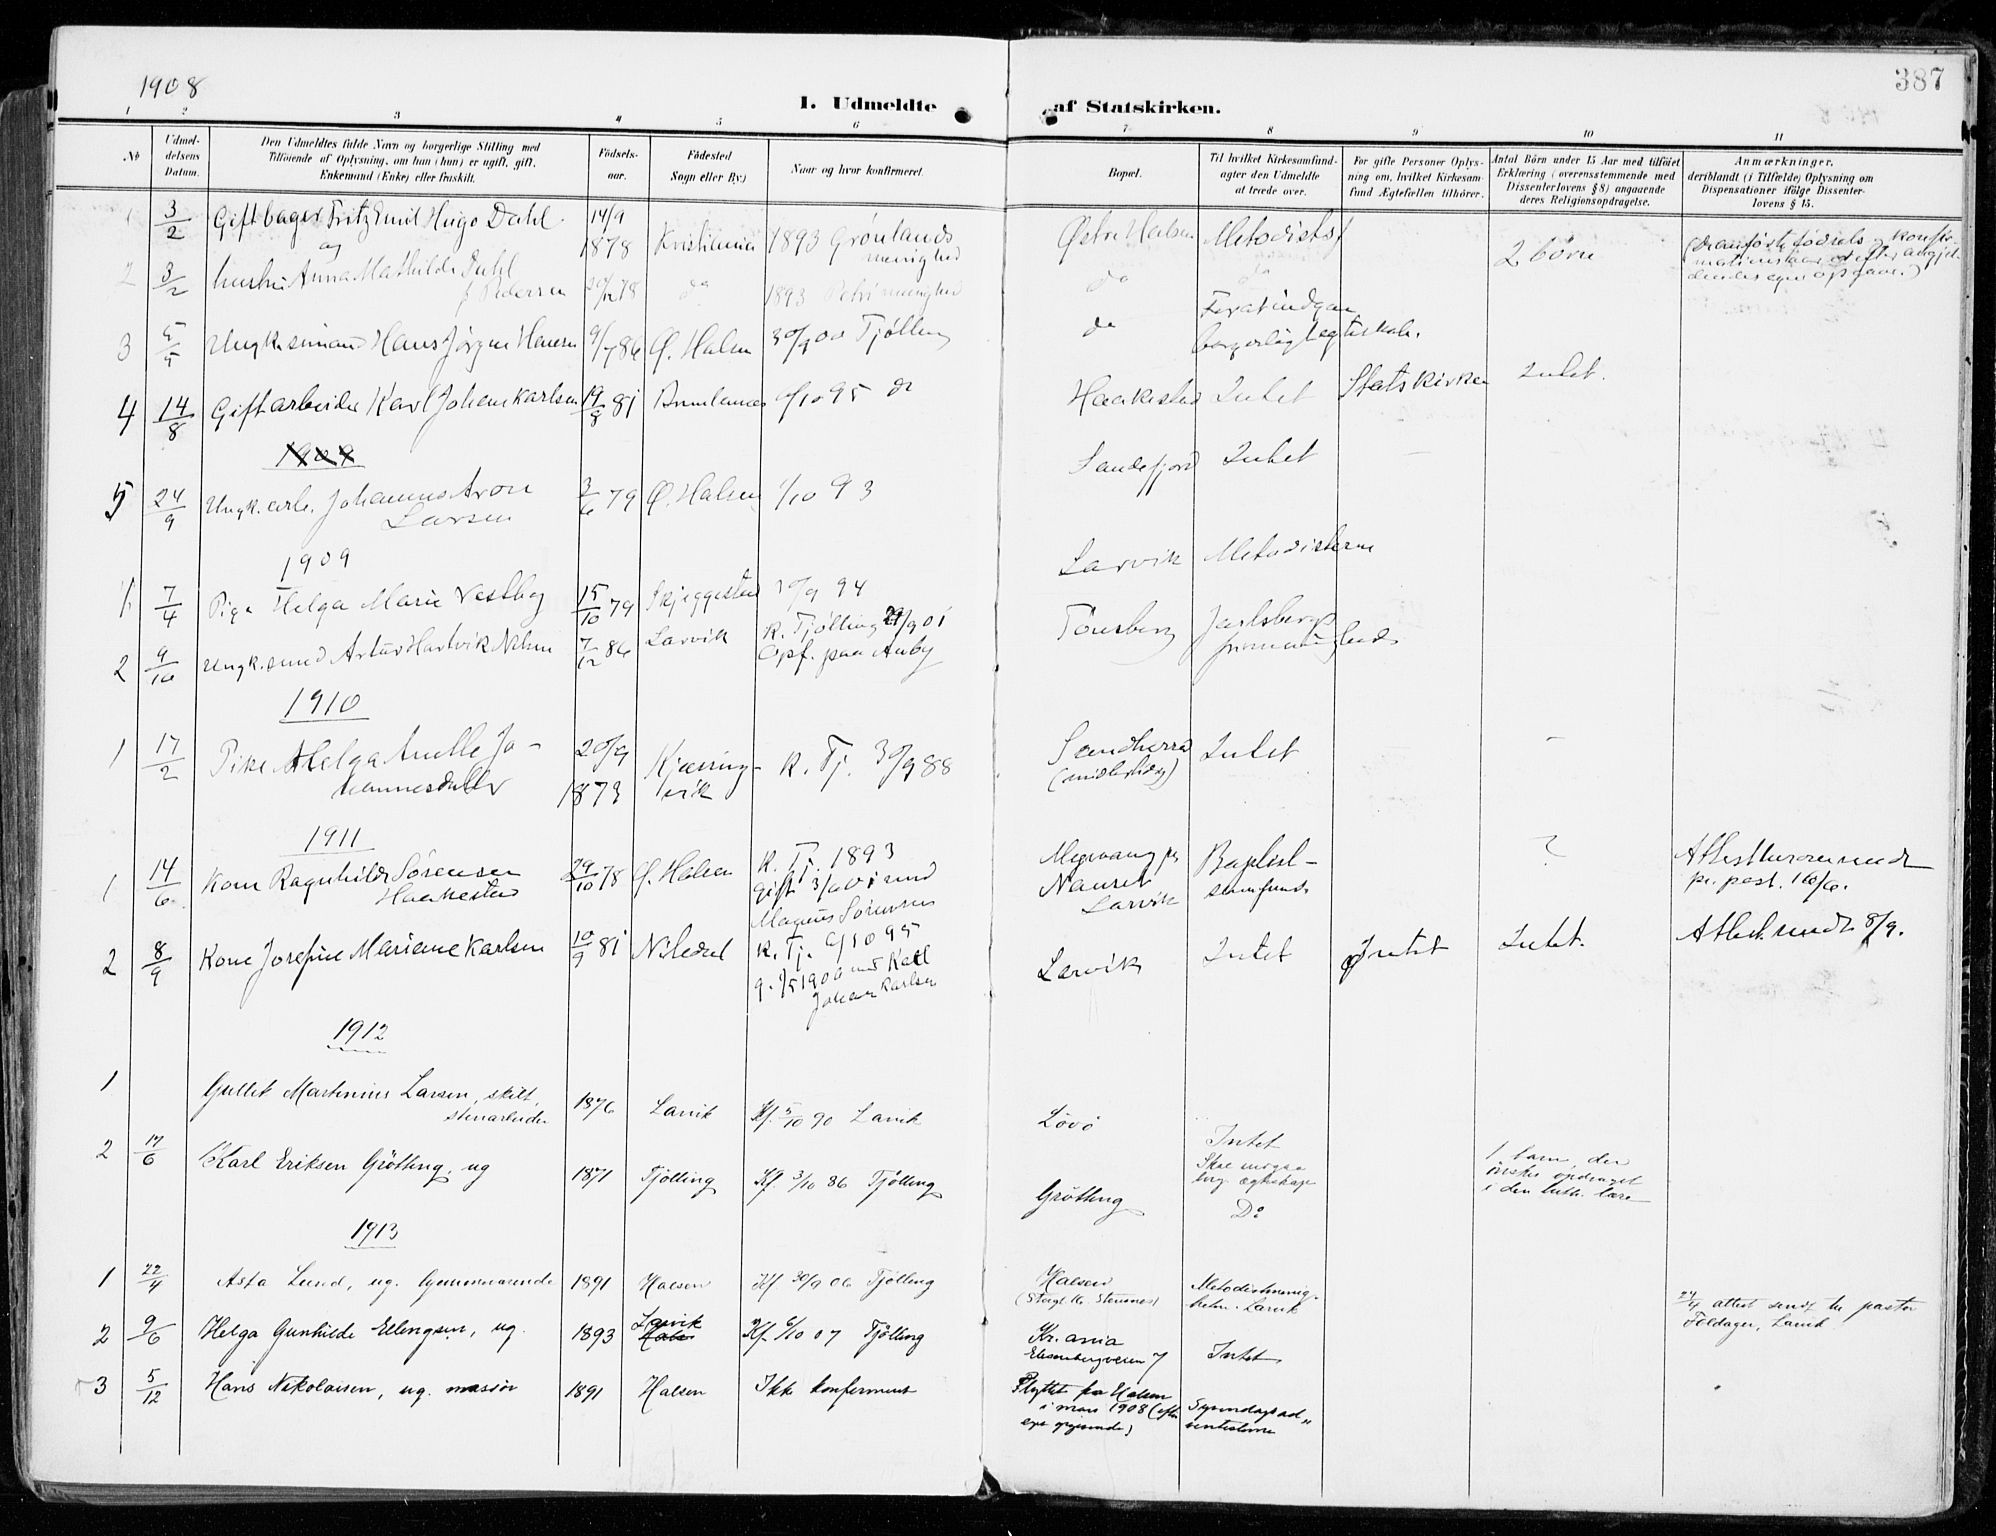 387
1908
I. Udmeldte af Statskirken.
1 2 3 4 5 6 7 8 9 10 11
No
Udmeldelsens Datum.
Den Udmeldtes fulde Navn og borgerlige Stilling med
Tilføiende af Oplysning, om han (hun) er ugift, gift,
Enkemand (Enke) eller fraskilt.
Fødselsaar.
Fødested
Sogn eller By.)
Naar og hvor konfirmeret.
Bopæl.
Til hvilket Kirkesamfund
agter den Udmeldte
at træde over.
For gifte Personer Oplys-
ning om, hvilket Kirkesam-
fund Ægtefællen tilhører.
Antal Børn under 15 Aar med tilføiet
Erklæring (overensstemmende med
Dissenterlovens § 8) angaaende
deres Religionsopdragelse.
Anmærkninger,
deriblandt (i Tilfælde) Oplysning om
Dispensationer ifølge Dissenter-
lovens § 15.
1 3/2 Gift bager Fritz Emil Hugo Dahl 14/9 1878 Kristiania 1893 Grønlands menighed Østre Halsen Metodistsf 2 børn
og
2 3/2 hustru Anna Mathilde Dahl f. Pedersen 78 do 1893 Petri menighed do do
3 5/5 Ungk. sømand Hans Jørgen Hansen 9/7 86 Ø. Halsen 30/9 00 Tjølling do borgerlig ægteskab.
4 14/8 Gift arbeider Karl Johan Karlsen 19/8 81 Brunlanes /10 95 do Haakestad Intet Statskirken Intet.
1909
5 24/9 Ungk. arb. Johannes Aron Larsen 2/6 79 Ø. Halsen 1/10 93 Sandefjord Intet
1909
1 7/4 Pige Helga Marie Vestby 15/10 79 Skjeggestad 30/9 94 Larvik Metodisterne
2 9/10 Ungk. smed Artur Hartvik Nilsen 7/12 86 Larvik K. Tjølling 29/9 01 Opf. paa Auby Tønsberg Jarlsbergs frimenighed
1910
1 17/2 Pike Helga Anette Johannesdatter 20/9 1873 Kjærringvik K. Tj. 30/9 88 Sandherred (midlertidig) Intet –
1911
1 14/6 Kone Ragnhild Sørensen Haakestad 29/10 78 Ø. Halsen K. Tj. 1893 gift 3/ 01 med Magnus Sørensen pr Nanset Larvik Baptistsamfund ? pr. post. 16/6.
2 8/9 Kone Josefine Mariane Karlsen 10/9 81 K. Tj. /10 95 g. /5 1900 med Karl Johan Karlsen Larvik Intet Intet Intet. Attest sendt 8/9.
1912
1 Gullik Martinius Larsen, skilt, stenarbeider 1876 Larvik Kf. 5/10 90 Larvik Løvø Intet
2 17/6 Karl Eriksen Grøtting, ug 1871 Tjølling Kf. 3/10 86 Tjølling Grøtting Do 1 barn, der ønskes opdraget i den luth. lære
Skal indgaa borg. ægteskap
1913
1 22/4 Asta Lund, ug. hjemmeværende 1891 Halsen Kf. 30/9 06 Tjølling Halsen Metodistmenigheten. Larvik 24/4 attest sendt til pastor Larvik
2 9/6 Helga Gunhilde Ellingsen, ug. 1893 Larvik Kf. 6/10 07 Tjølling Kr.ania Elisenbergveien 7 Intet
3 5/12 Hans Nikolaisen, ug. massør 1891 Halsen Ikke konfirmert Flyttet fra Halsen i mars 1908 (efter eget opgivende) Syvendagsadventisterne